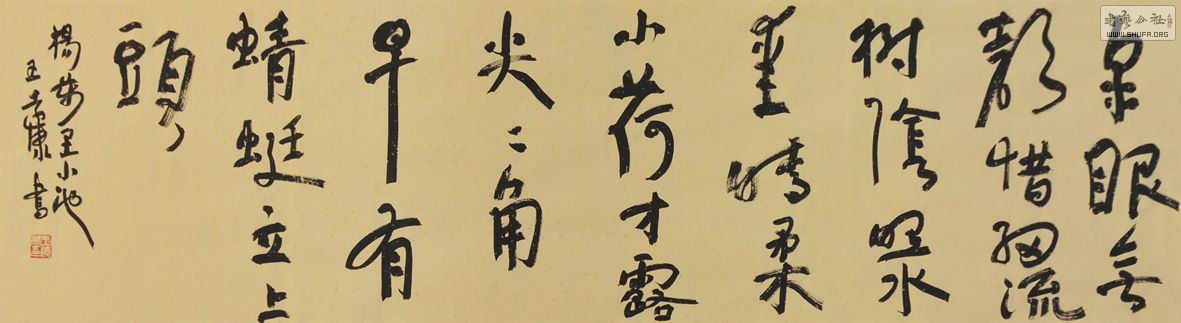 书艺公社
WWW.SHUFA.ORG
泉眼無
聲惜細流
樹陰照水
愛晴柔
小荷才露
尖〻角
早有
蜻蜓立上
頭
楊萬里小池
王 康書